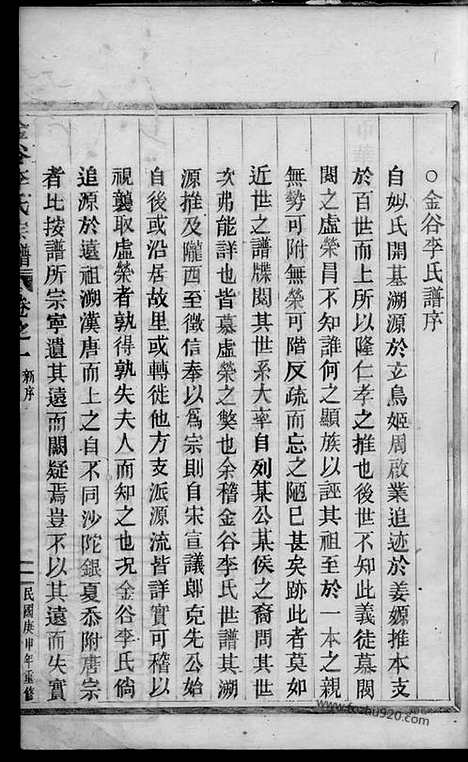 ○金谷李氏譜序
自姒氏開基溯源於玄鳥姬周啟業追迹於姜嫄推本支
於百世而上所以隆仁孝之推也後世不知此義徒慕閥
閱之虛榮昌不知誰何之顯族以誣其祖至於一本之親
無勢可附無榮可階反疏而忘之陋已甚矣跡此者莫如
近世之譜牒閱其世系大率自列某公某侯之裔問其世
次弗能詳也皆慕虛榮之獘也余稽金谷李氏世譜其溯
源推及隴西至徵信奉以為宗則自宋宣議郎克先公始
自後或沿居故里或轉徙他方支派源流皆詳實可稽以
視襲取虛榮者孰得孰失夫人而知之也况金谷李氏倘
追源於遠祖溯漢唐而上之自不同沙陀銀夏忝附唐宗
者比按譜所宗寧遺其遠而闕疑焉豈不以其遠而失實
金谷李氏宗譜 卷之一 新序 民國庚申年重修
www.fozhu920.com